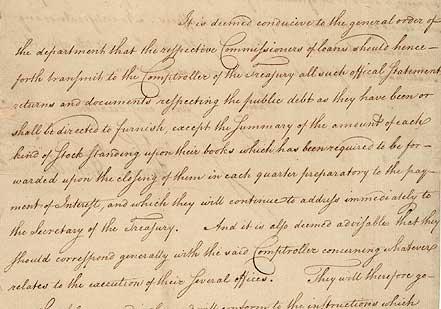 It is deemed conducive to the general order of
the department that the respective Commissioners of loans should hence-
forth transmit to the Comptroller of the Treasury all such offical Statement
returns and documents respecting the public debt as they have been or
shall be directed to furnish, except the Summary of the amount of each
kind of Stock standing upon their books which has been required to be for-
warded upon the closing of them in each quarter preparatory to the pay-
ment of Interest, and which they will continue to address immediately to
the Secretary of the Treasury. And it is also deemed advisable that they
should correspond generally with the said Comptroller concerning whatever
relates to the execution of their several offices. They will therefore go-
will conform to the instructions which